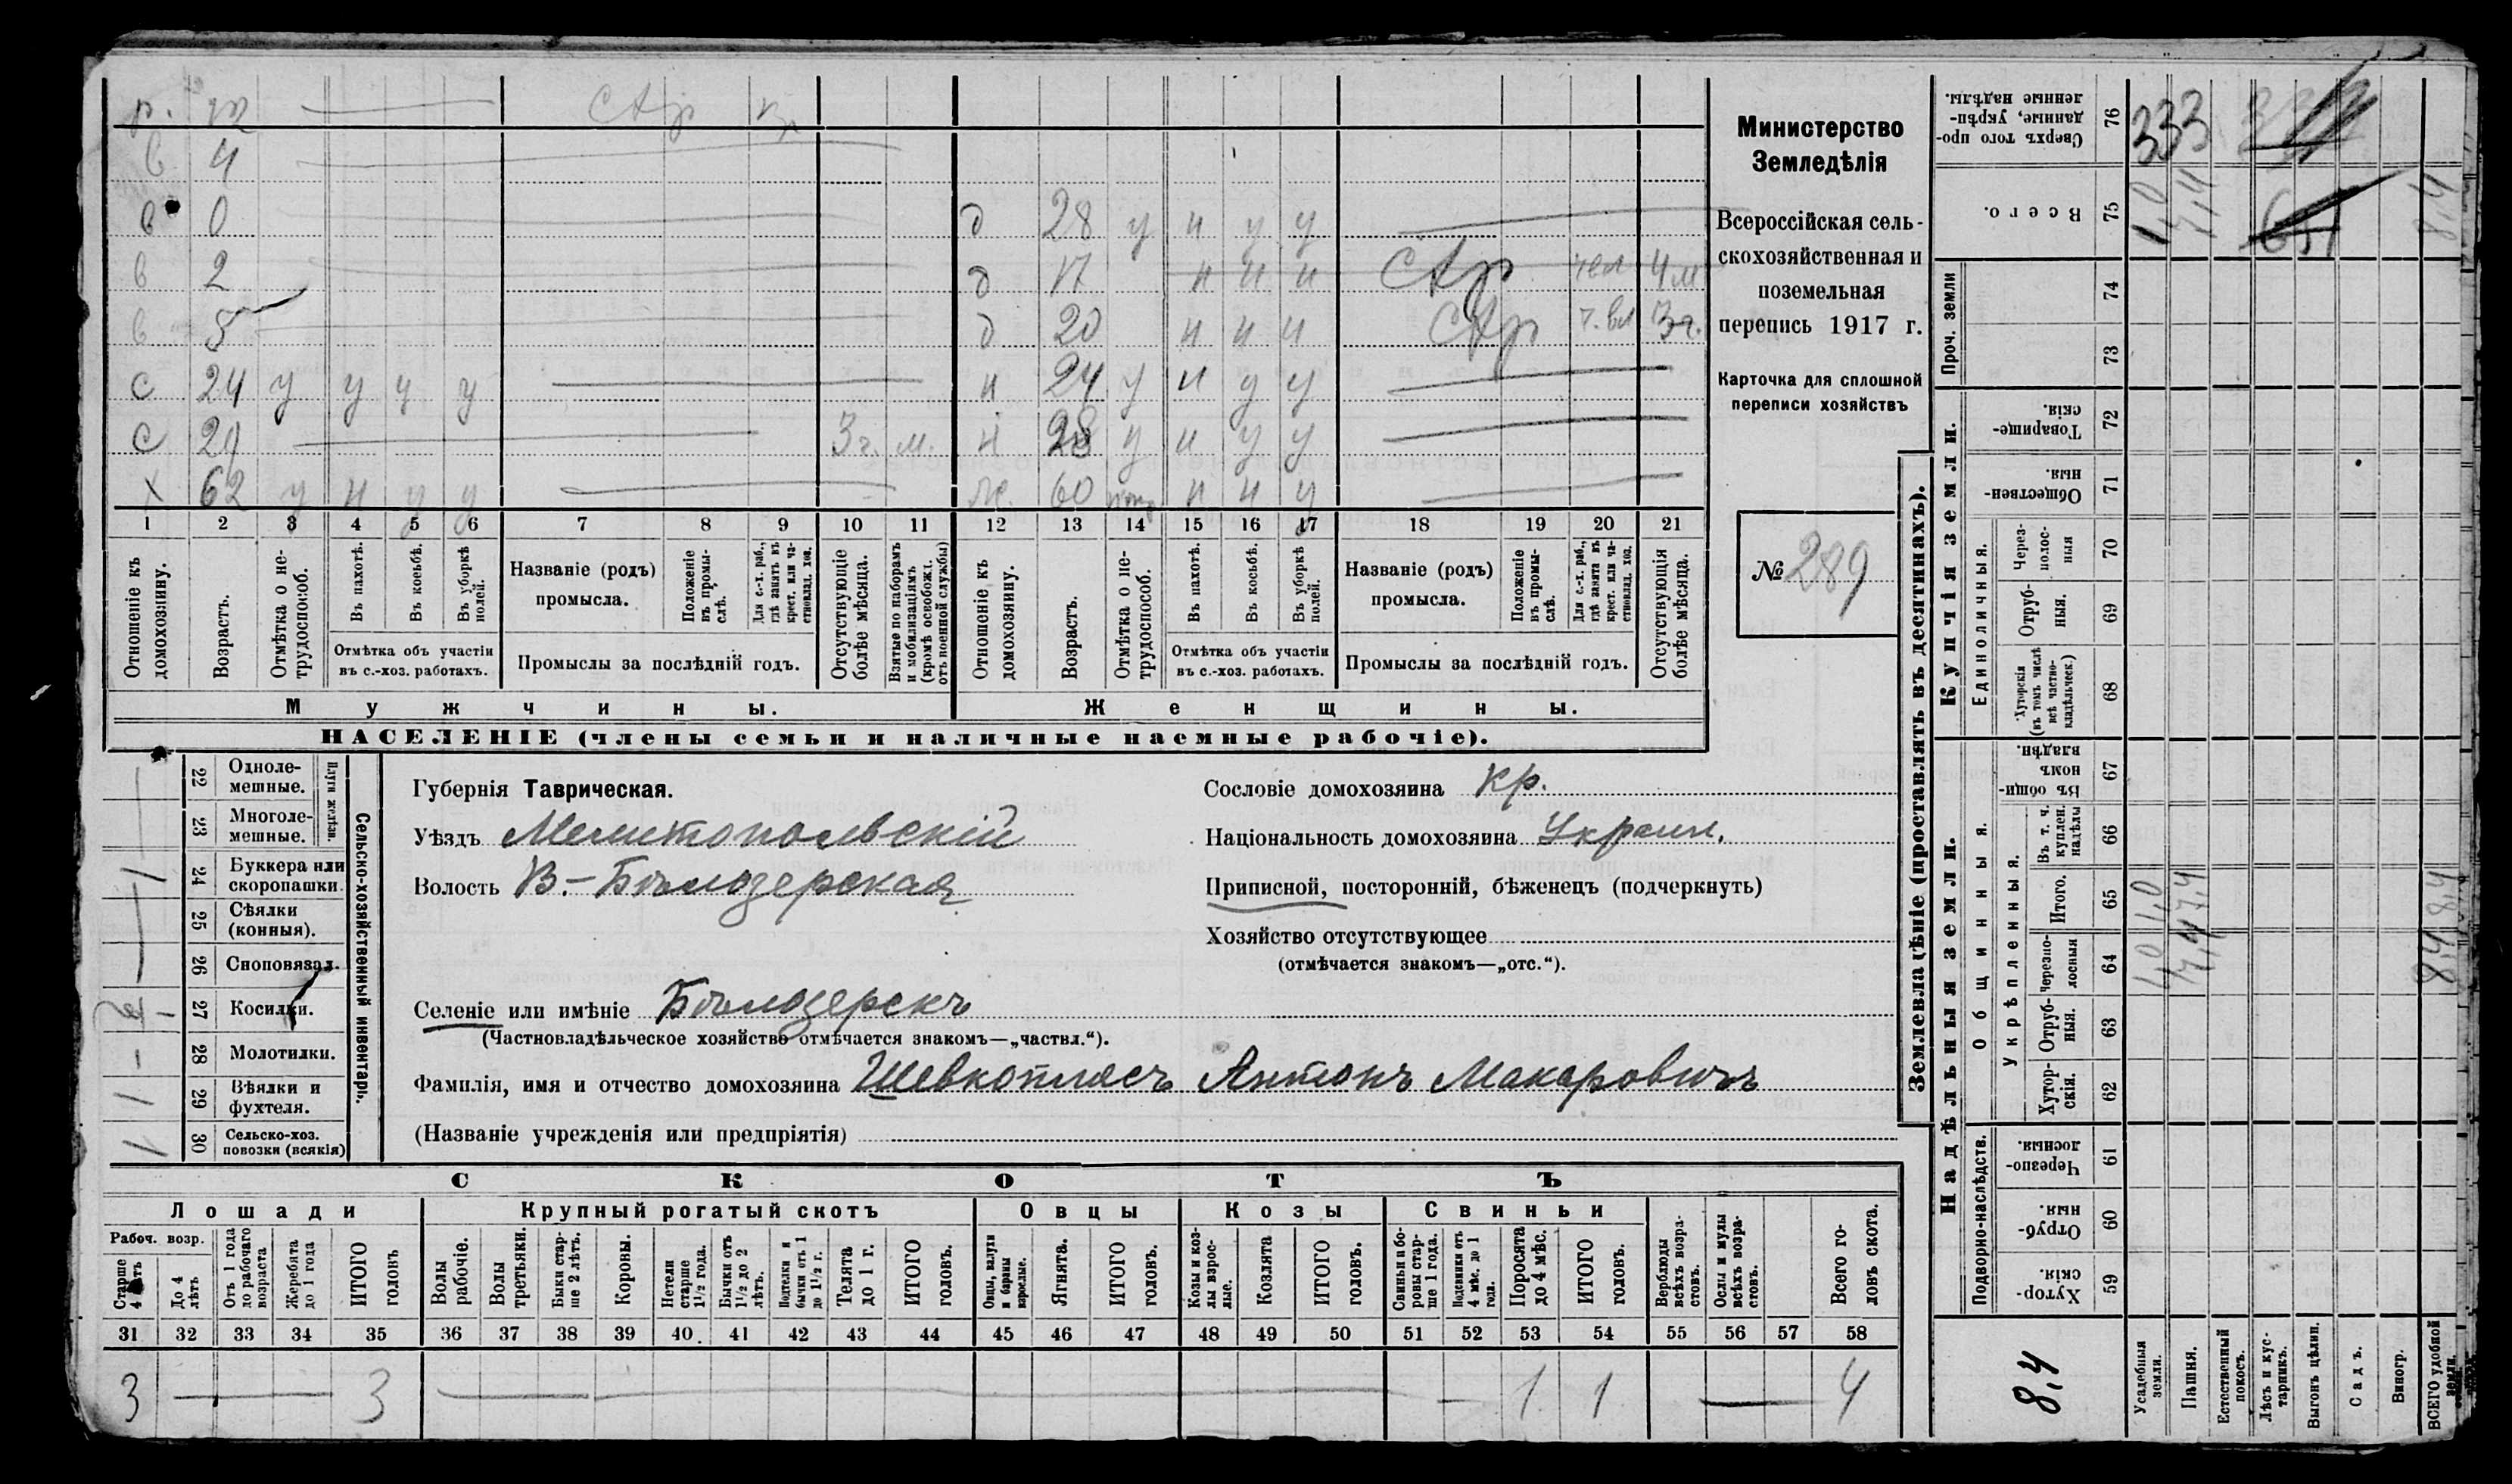 р. 12 стр
в 4
в 0 д 28 у н у у
в 2 д 17 н н н стр 4 м
в 5 д 20 н н н стр 3 г.
с 24 у у у у н 24 у н у у
с 29 3 г. м. н 28 у н у у
х 62 у н у у ж. 60 н н у
1 2 3 4 5 6 7 8 9 10 11 12 13 14 15 16 17 18 19 20 21
Отношеніе къ домохозяину.
Возрастъ.
Отмѣтка о нетрудоспособ.
Въ пахотѣ.
Въ косьбѣ.
Въ уборкѣ полей.
Отмѣтка объ участіи
въ с.-хоз. работахъ.
Названіе (родъ)
промысла.
Положеніе въ промыслѣ.
Для с.-х. раб., гдѣ занятъ въ крест. или частновлад. хоз.
Промыслы за послѣдній годъ.
Отсутствующіе болѣе мѣсяца.
Взятые по наборамъ и мобилизаціямъ (кромѣ освобожд. отъ военной службы)
Отношеніе къ домохозяину.
Возрастъ.
Отмѣтка о нетрудоспособ.
Въ пахотѣ.
Въ косьбѣ.
Въ уборкѣ полей.
Отмѣтка объ участіи
въ с.-хоз. работахъ.
Названіе (родъ)
промысла.
Положеніе въ промыслѣ.
Для с.-х. раб., гдѣ занята въ крест. или частновлад. хоз.
Промыслы за послѣдній годъ.
Отсутствующія болѣе мѣсяца.
Мужчины. Женщины.
НАСЕЛЕНІЕ (члены семьи и наличные наемные рабочіе).
Министерство
Земледѣлія
Всероссійская сель-
скохозяйственная и
поземельная
перепись 1917 г.
Карточка для сплошной
переписи хозяйствъ
№ 289
22 Одноле-
мешные.
23 Многоле-
мешные.
Плуги желѣзн.
24 Буккера или
скоропашки.
1
25 Сѣялки
(конныя).
26 Сноповязал.
27 Косилки.
28 Молотилки.
29 Вѣялки и
фухтеля.
1
30 Сельско-хоз.
повозки (всякія)
1
Сельско-хозяйственный инвентарь.
Губернія Таврическая.
Уѣздъ Мелитопольскій
Волость В.-Бѣлозерская
Селеніе или имѣніе Бѣлозерскъ
(Частновладѣльческое хозяйство отмѣчается знакомъ—„частвл.“).
Фамилія, имя и отчество домохозяина Шевкоплясъ Антонъ Макаровичъ
(Названіе учрежденія или предпріятія)
Сословіе домохозяина кр.
Національность домохозяина Украин.
Приписной, посторонній, бѣженец (подчеркнуть)
Хозяйство отсутствующее
(отмѣчается знакомъ—„отс.“).
СКОТЪ
Лошади Крупный рогатый скотъ Овцы Козы Свиньи
Рабоч. возр.
Старше 4 лѣтъ
До 4 лѣтъ
Отъ 1 года до рабочаго возраста
Жеребята до 1 года
ИТОГО головъ
Волы рабочіе.
Волы третьяки.
Быки старше 2 лѣтъ.
Коровы.
Нетели старше 1½ года.
Бычки отъ 1½ до 2 лѣтъ.
Подтелки и бычки отъ 1 до 1½ г.
Телята до 1 г.
ИТОГО головъ.
Овцы, валухи и бараны взрослые.
Ягнята.
ИТОГО головъ.
Козы и козлы взрослые.
Козлята
ИТОГО головъ.
Свиньи и боровы старше 1 года.
Подсвинки отъ 4 мѣс. до 1 года.
Поросята до 4 мѣс.
ИТОГО головъ.
Верблюды всѣхъ возрастовъ.
Ослы и мулы всѣхъ возрастовъ.
Всего головъ скота.
31 32 33 34 35 36 37 38 39 40 41 42 43 44 45 46 47 48 49 50 51 52 53 54 55 56 57 58
3 3 1 1 4
Землевладѣніе (проставлять въ десятинахъ).
Купчія земли.
Надѣльныя земли.
76 Сверхъ того проданные, укрѣпленные надѣлы.
333
75 Всего.
1,0 7,4 8,4
Проч. земли
74
73
72 Товарищескія.
71 Общественныя.
Единоличныя.
70 Черезполосныя
69 Отрубныя.
68 Хуторскія (въ томъ числѣ всѣ частновладѣльческ.)
67 Въ общинномъ владѣн.
66 Въ т. ч. куплен. надѣлы
Общинныя.
Укрѣпленныя.
65 Итого.
1,0 7,4 8,4
64 Черезполосныя
1,0 7,4 8,4
63 Отрубныя.
62 Хуторскія.
Подворно-наслѣдств.
61 Черезполосныя.
60 Отрубныя.
59 Хуторскія.
8,4
Усадебныя земли.
Пашня.
Естественный покосъ.
Лѣсъ и кустарникъ.
Выгонъ цѣлин.
Садъ.
Виногр.
ВСЕГО удобной земли.